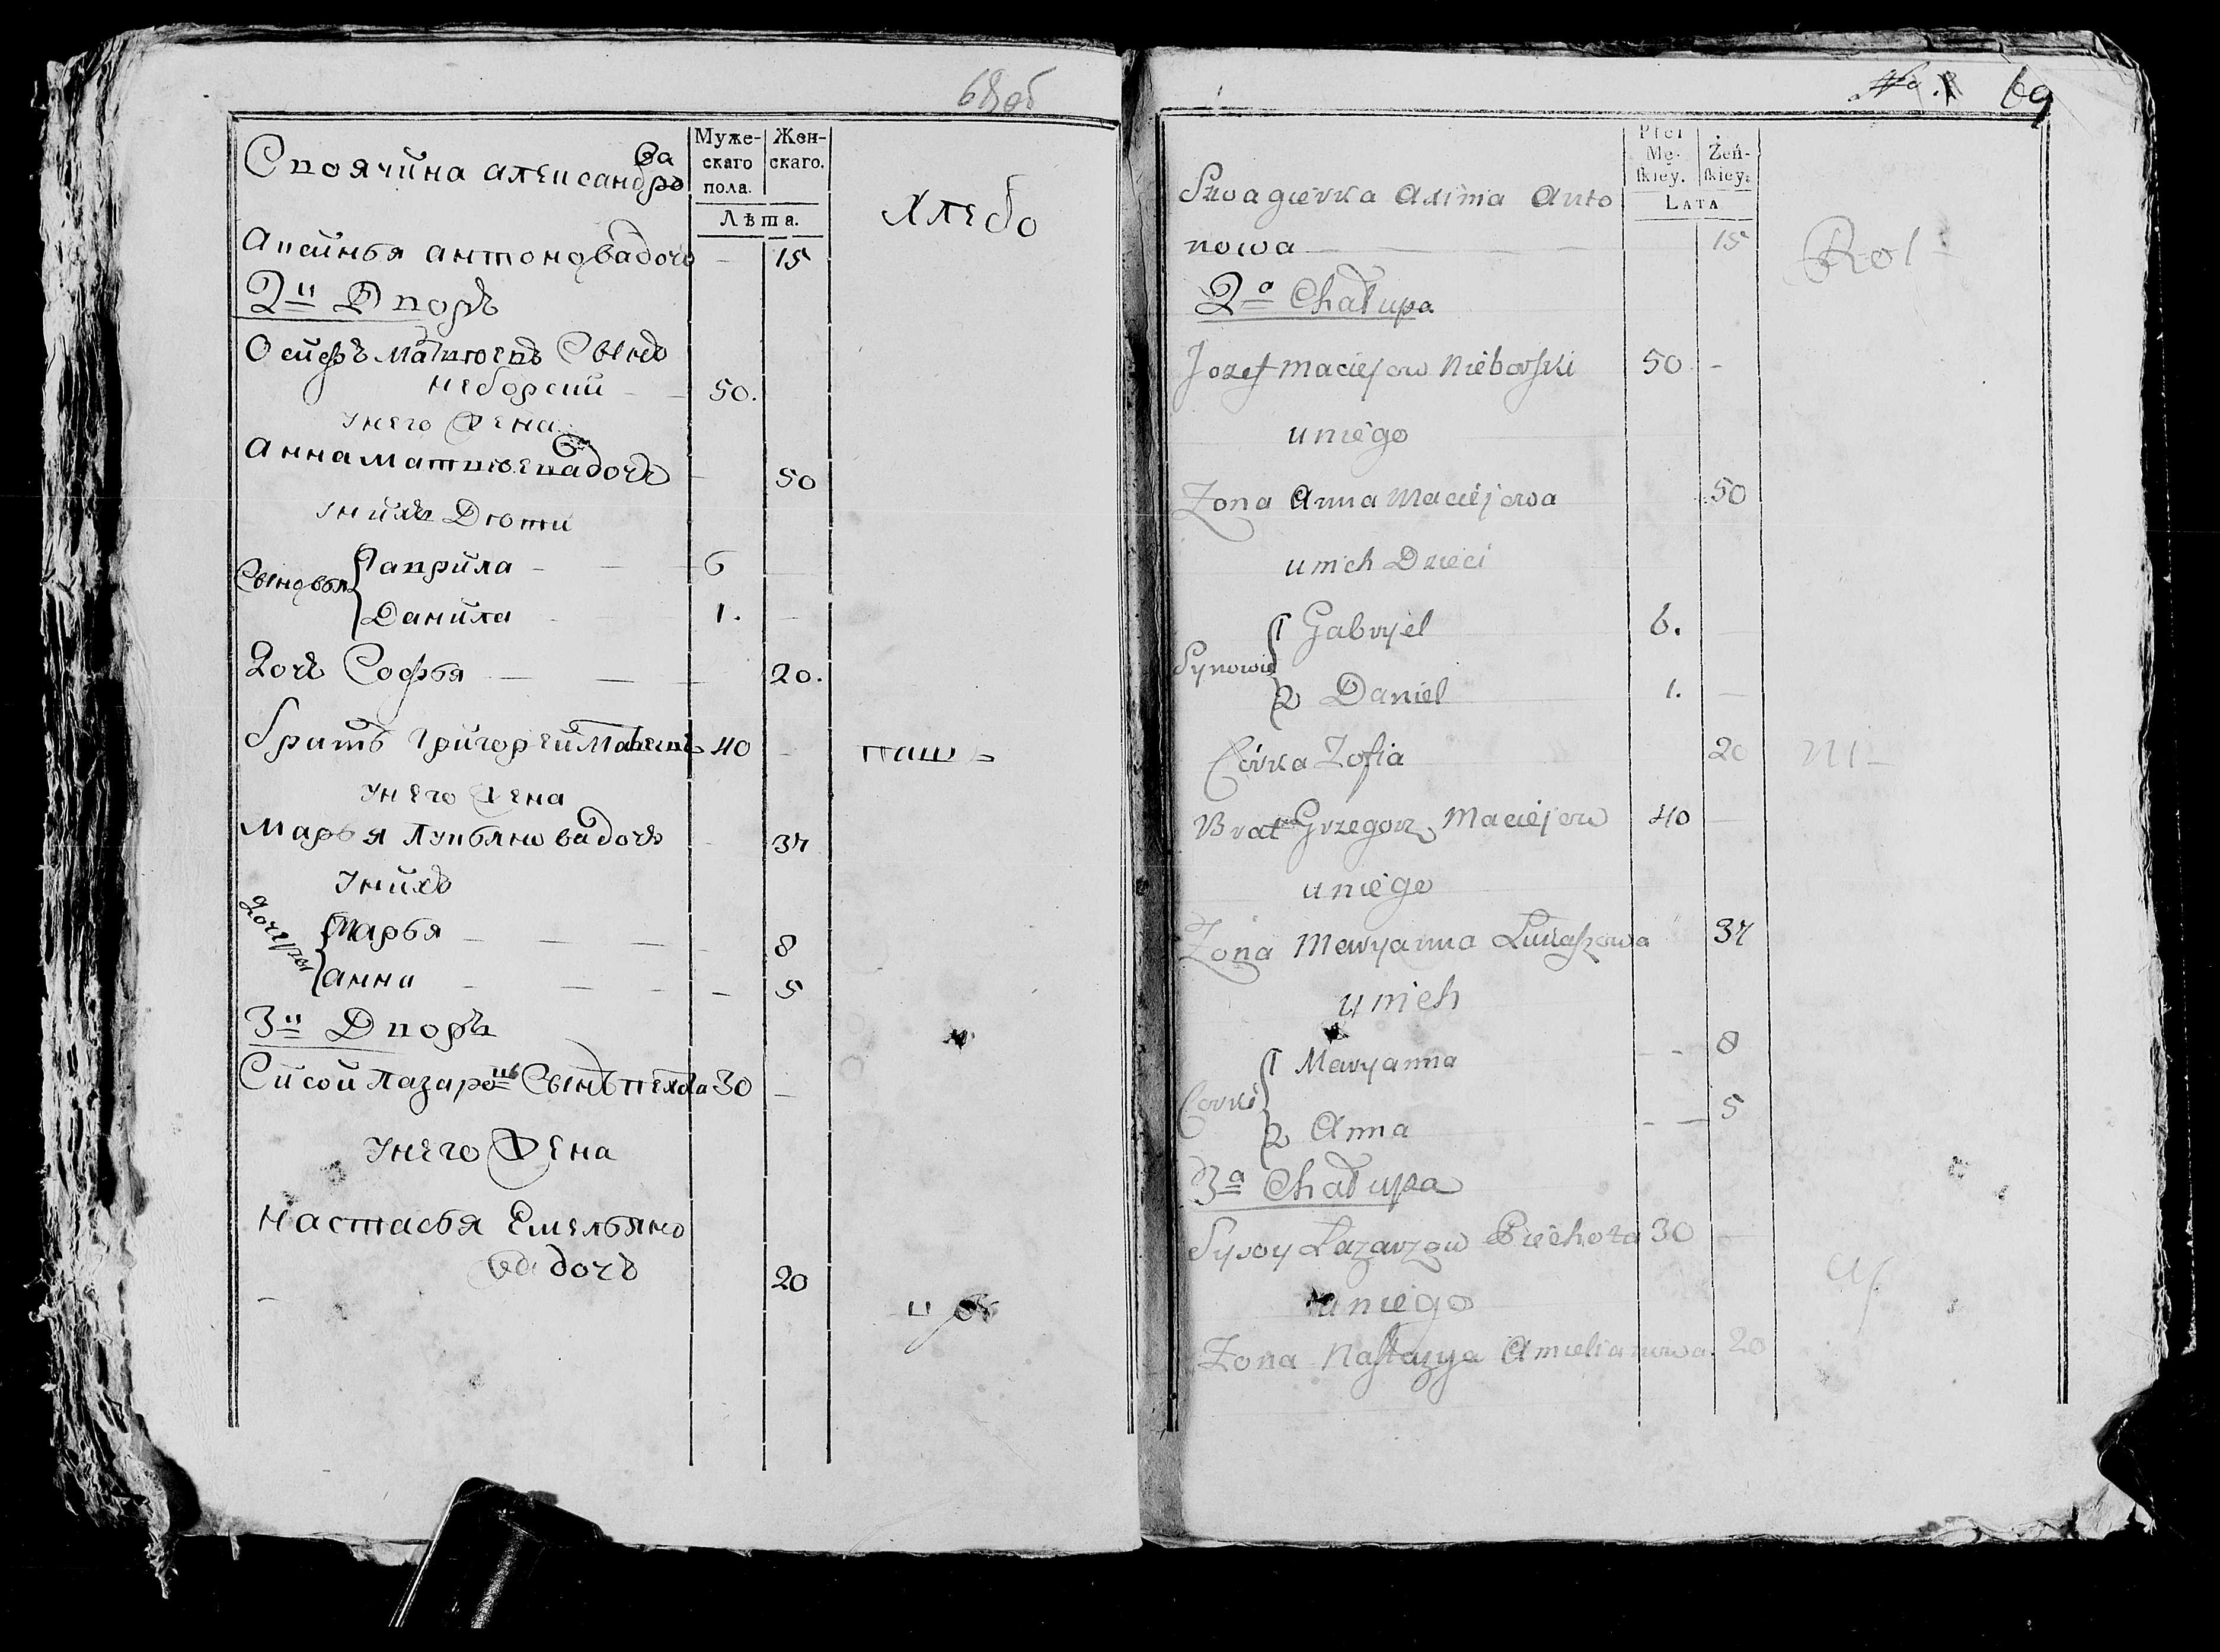 68 об
Муже-
скаго
пола.
Жен-
скаго.
Лѣта.
Споячина александро
ва
хлебо
аксинья антонова дочь — 15
2й Дворъ
Осифъ матвеевъ Сынъ
неборский — 50.
Унего жена
анна матвеева дочь — 50
Унихъ Дети
Сыновья
Гаврила — 6
Данила — 1.
Дочь Софья — 20.
братъ григорей Матвеевъ 40 — паш
Унего жена
Марья лукьянова дочь — 37
Унихъ
дочери
Марья — 8
анна — 5
3й Дворъ
Сисой лазаревъ Сынъ пехота 30
Унего жена
настасья Емельяно
ва дочь 20
69
Płci
Mę-
skiey.
Żeń-
skiey.
LATA
Szwagierka Axima Anto
nowa — 15 Rol
2a Chałupa
Jozef Maciejow Nieborski 50 -
u niego
Zona Anna Maciejowa 50
u nich Dzieci
Synowie
1 Gabryel 6.
2 Daniel 1.
Córka Zofia 20
Brat Grzegorz Maciejow 40
u niego
Zona Maryanna Łukaszowa 37
u nich
Corki
1 Maryanna - - 8
2 Anna - — 5
3a Chałupa
Sysoy Łazarzow Piechota 30
u niego
Zona Nastazya Amelianowa 20